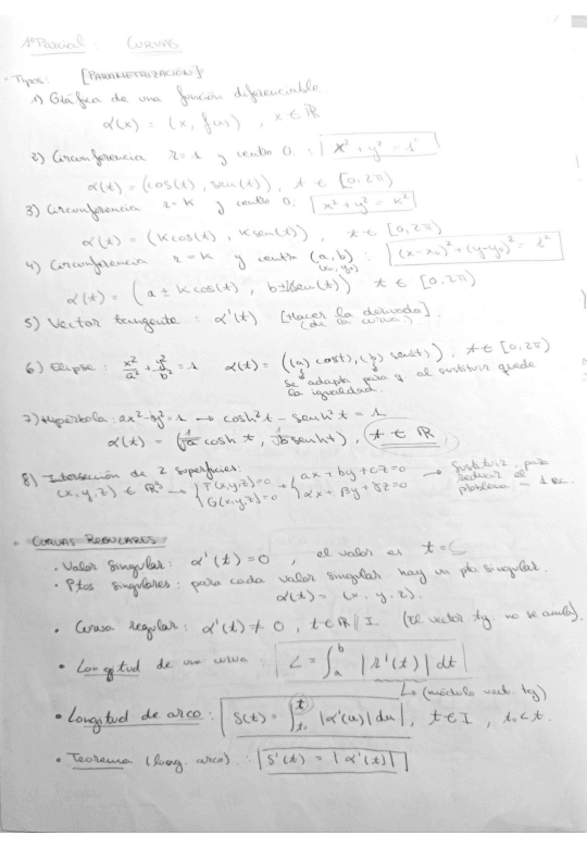 1º Parcial : CURVAS
• Tipos: [PARAMETRIZACIÓN]
1) Gráfica de una función diferenciable
α(x) = (x, f(x)) , x ∈ ℝ
2) Circunferencia r = 1 y centro 0. : x² + y² = 1
α(t) = (cos(t), sen(t)), t ∈ [0, 2π)
3) Circunferencia r = K y centro 0: x² + y² = K²
α(t) = (K cos(t), K sen(t)), t ∈ [0, 2π)
4) Circunferencia r = K y centro (a, b) : (x-x₀)² + (y-y₀)² = r²
(x₀, y₀)
α(t) = (a ± K cos(t), b ± K sen(t)) t ∈ [0, 2π)
5) Vector tangente : α'(t) [Hacer la derivada]
(de la curva)
6) Elipse : x²/a² + y²/b² = 1 α(t) = ((a) cos t, (b) sen t) , t ∈ [0, 2π)
se adapta para q al sustituir quede
la igualdad.
7) Hipérbola : ax² - by² = 1 → cosh² t - senh² t = 1
α(t) = (1/√a cosh t, 1/√b senh t), t ∈ ℝ
8) Intersección de 2 superficies:
(x, y, z) ∈ ℝ³ → { F(x,y,z) = 0 → { ax + by + cz = 0 → Sustituir para
G(x,y,z) = 0 αx + βy + γz = 0 reducir el
problema a 1 ec.
• CURVAS REGULARES
• Valor singular : α'(t) = 0 , el valor es t =
• Ptos singulares : para cada valor singular hay un pto singular.
α(t) = (x, y, z).
• Curva regular : α'(t) ≠ 0 , t ∈ ℝ | I. (El vector tg. no se anula).
• Longitud de una curva : L = ∫ₐᵇ |α'(t)| dt
↳ (módulo vect. tg)
• Longitud de arco : S(t) = ∫ₜ₀ᵗ |α'(u)| du , t ∈ I , t₀ < t.
• Teorema (long. arco) : S'(t) = |α'(t)|